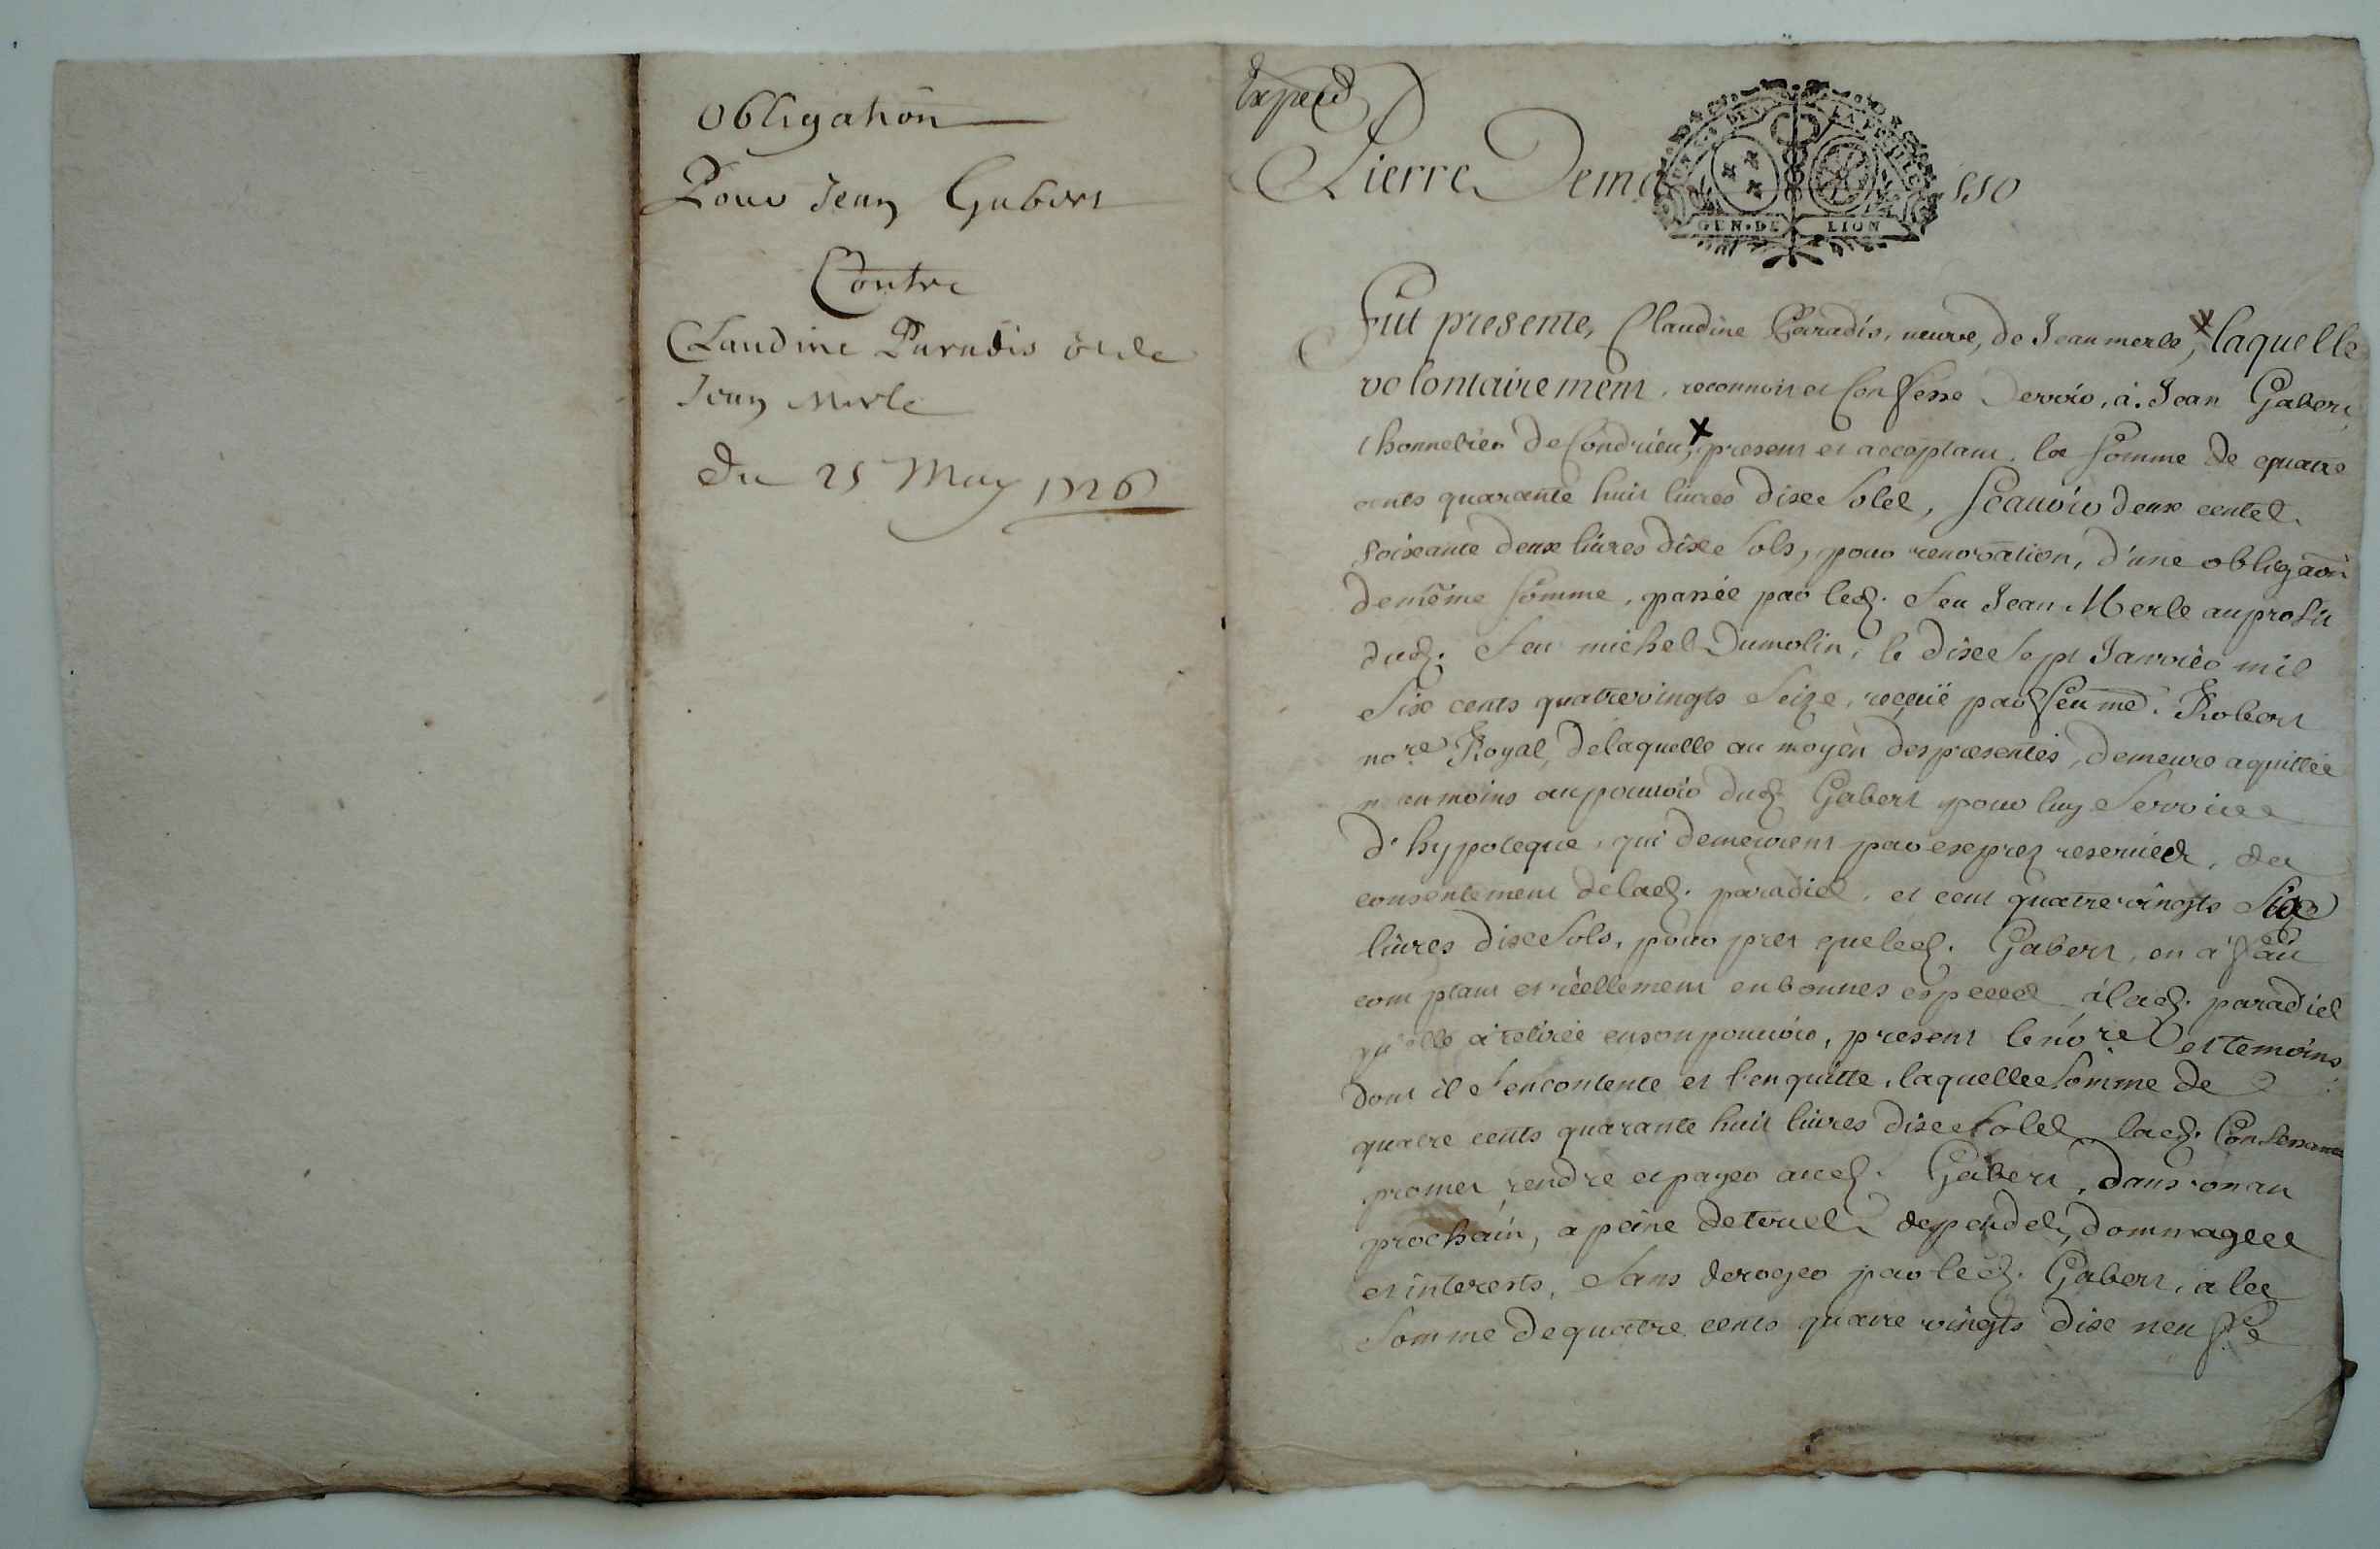 Obligation
Pour Jean Gabert
Contre
Claudine Paradis vv de
Jean Merle
Du 25 May 1726
Exped
Pierre Dema
GEN. DE LION
Fut presente, Claudine Paradis, veuve, de Jean merle, x laquelle
volontairement, reconnoit et Confesse Devoir, à Jean Gabert
thonnelier De Condrieu, x present et acceptant, la somme De quatre
cents quarante huit livres dixe Solz, scauoir deux centz
soixante deux livres dixe sols, pour renovation, d'une obligaõn
de même somme, passée par led. feu Jean Merle au profit
dud. feu michel Dumolin, le dixe sept Janvier mil
Six cents quatrevingts Seize, reçeüe par feu me. Robert
nore. Royal, de laquelle au moyen des presentes, demeure aquittée
neanmoins au pouvoir dud. Gabert pour luy Servir
d'hypoteque, qui demeurent par exprez reservéz, du
consentement de lad. paradis, et cent quatrevingts Six
livres dixe Sols, pour pret que led. Gabert, en a fait
comptant et réellement en bonnes especes à lad. paradis
qu'elle a retirée en son pouvoir, present le nore. et temoins
dont il s'en contente et l'en quitte, laquelle somme de
quatre cents quarante huit livres dixe solz lad. Confessante
promet rendre et payer aud. Gabert, dans un an
prochain, a peine de tous depends, dommages
et interests, Sans deroger par led. Gabert, a la
Somme de quatre cents quatre vingts dixe neuf